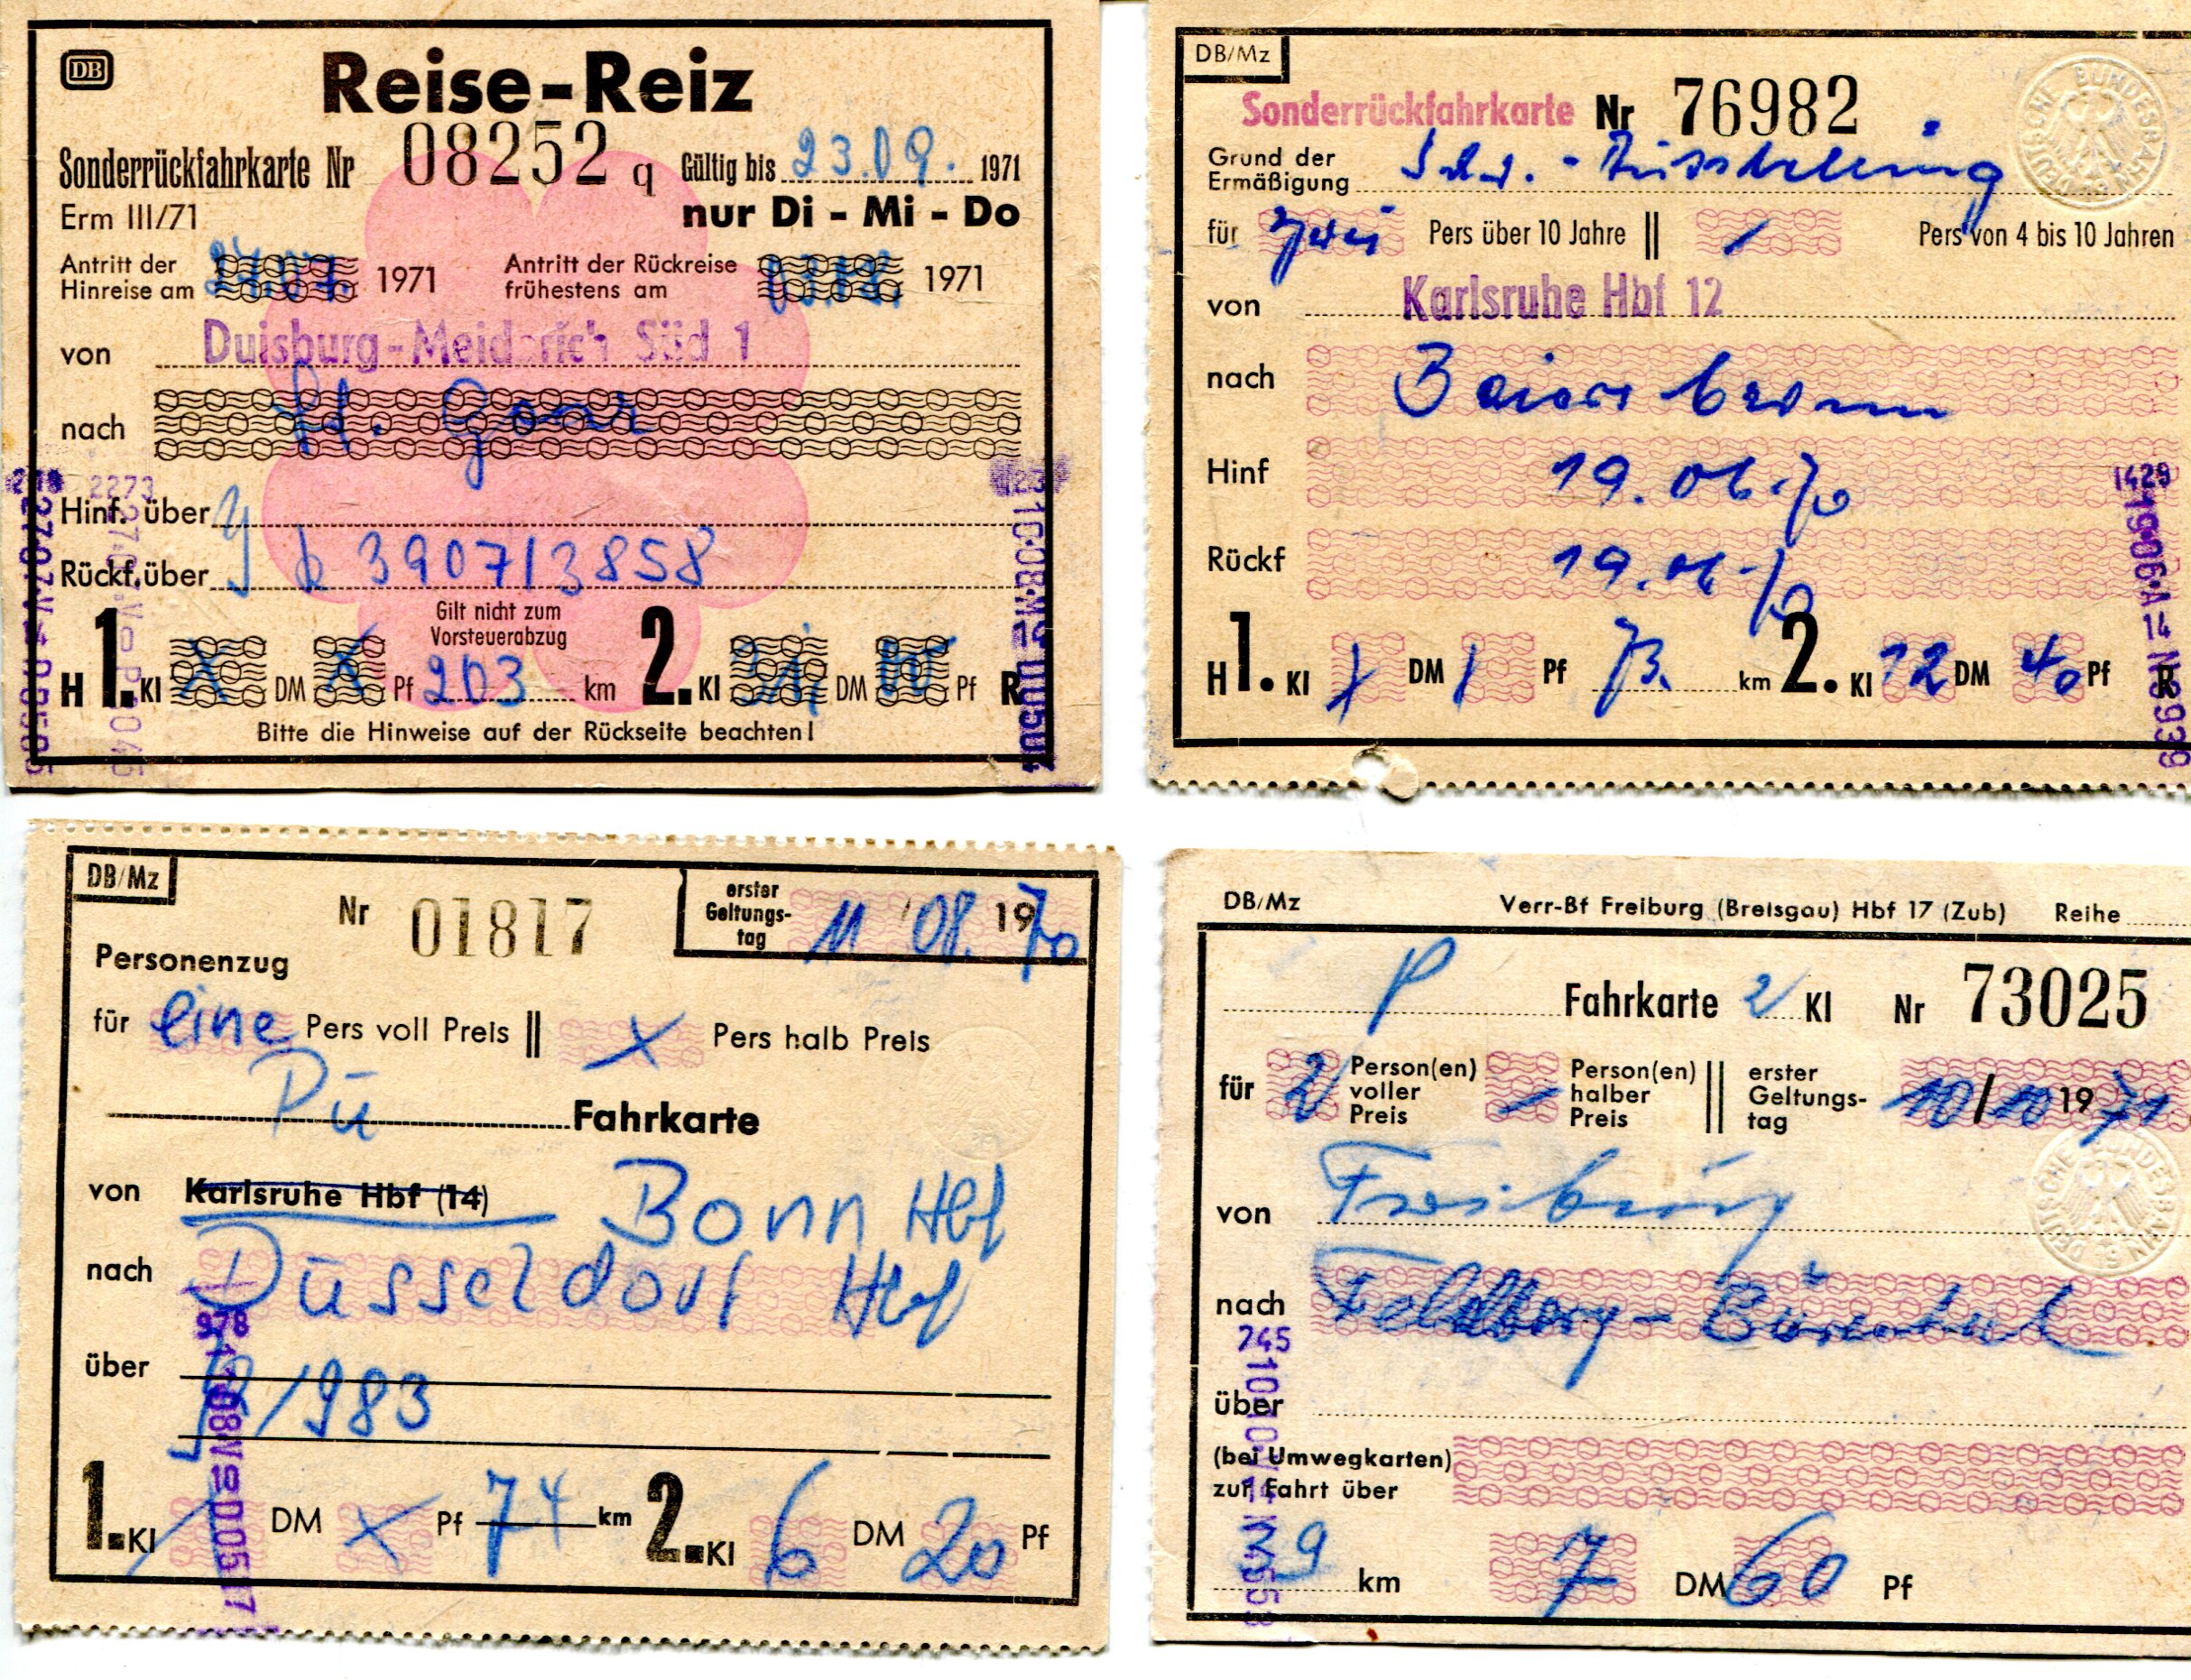 DB
Reise-Reiz
Sonderrückfahrkarte Nr 08252 q Gültig bis 23.09. 1971
Erm III/71 nur Di - Mi - Do
Antritt der Hinreise am 27.07. 1971 Antritt der Rückreise frühestens am 1971
von Duisburg-Meiderich Süd 1
nach St. Goar
Hinf. über
Rückf. über 3907/3858
Gilt nicht zum Vorsteuerabzug
H 1. Kl X DM X Pf 203 km 2. Kl DM Pf R
Bitte die Hinweise auf der Rückseite beachten!
2273
DB/Mz
Sonderrückfahrkarte Nr 76982
Grund der Ermäßigung Schw.-Ausstellung
für zwei Pers über 10 Jahre || / Pers von 4 bis 10 Jahren
von Karlsruhe Hbf 12
nach Baiersbronn
Hinf 19.06.70
Rückf 19.06.70
H 1. Kl / DM / Pf 73. km 2. Kl 12 DM 40 Pf R
1429
19·06·A-14
DEUTSCHE BUNDESBAHN
DB/Mz
Nr 01817
erster Geltungs-tag 11 08. 1970
Personenzug
für eine Pers voll Preis || X Pers halb Preis
Pü Fahrkarte
von Karlsruhe Hbf (14) Bonn Hbf
nach Düsseldorf Hbf
über
/983
1. Kl / DM X Pf 74 km 2. Kl 6 DM 20 Pf
978
DB/Mz Verr-Bf Freiburg (Breisgau) Hbf 17 (Zub) Reihe
P Fahrkarte 2 Kl Nr 73025
für 2 Person(en) voller Preis – Person(en) halber Preis || erster Geltungs-tag 10/10 1971
von Freiburg
nach Feldberg-Bärental
über
(bei Umwegkarten)
zur Fahrt über
39 km 7 DM 60 Pf
745
DEUTSCHE BUNDESBAHN